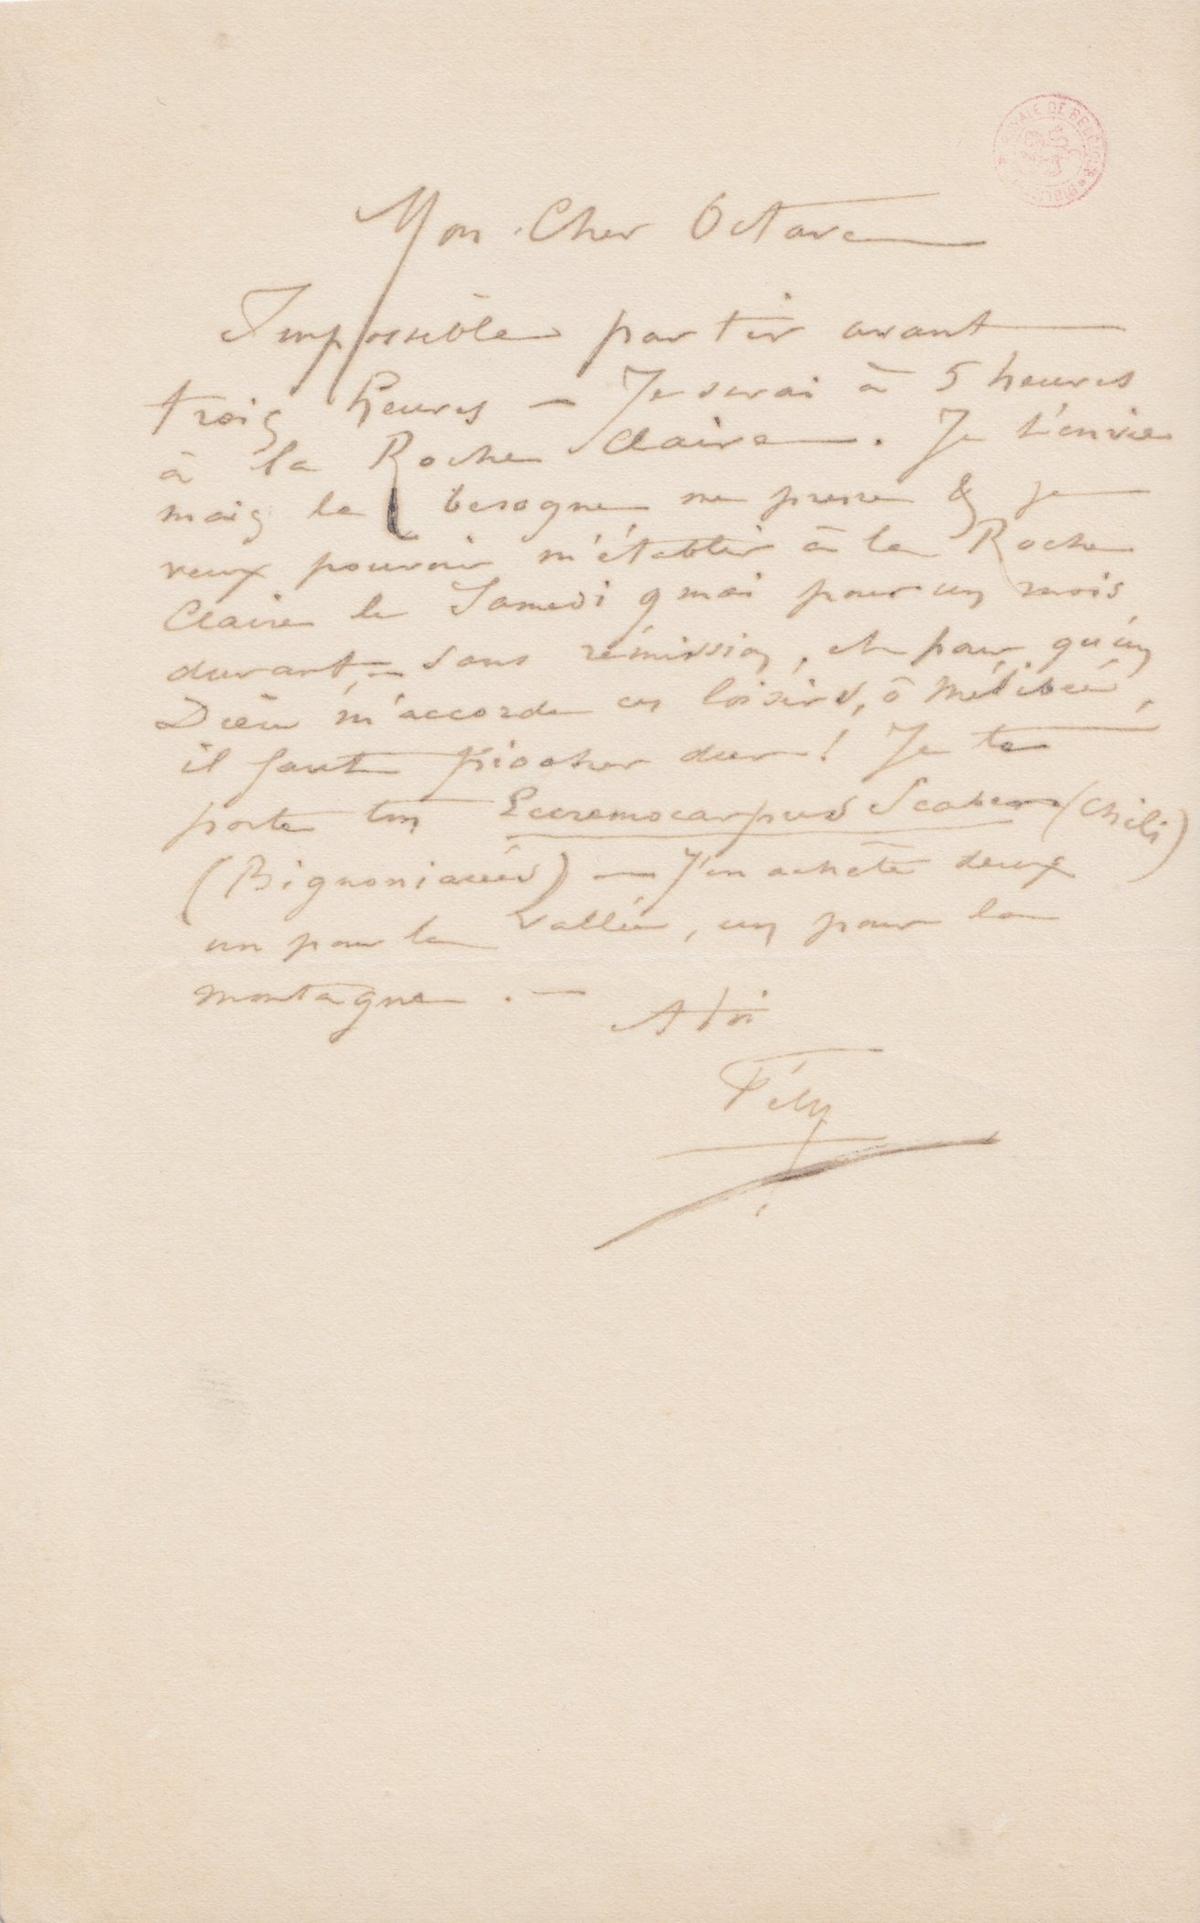 ROYALE DE BELGIQUE
Mon Cher Octave
Impossible partir avant
trois heures — Je serai à 5 heures
à la Roche Claire. Je t'envie
mais la besogne me presse & je
veux pouvoir m'établir à la Roche
Claire le Samedi 9 mai pour un mois
durant — sans rémission, et pour qu'un
Dieu m'accorde ces loisirs, ô Mélibée,
il faut piocher dur! Je te
porte ton Eccremocarpus Scaber (Chili)
(Bignoniacées) — J'en achète deux
un pour la vallée, un pour la
montagne. —
A toi
Fély